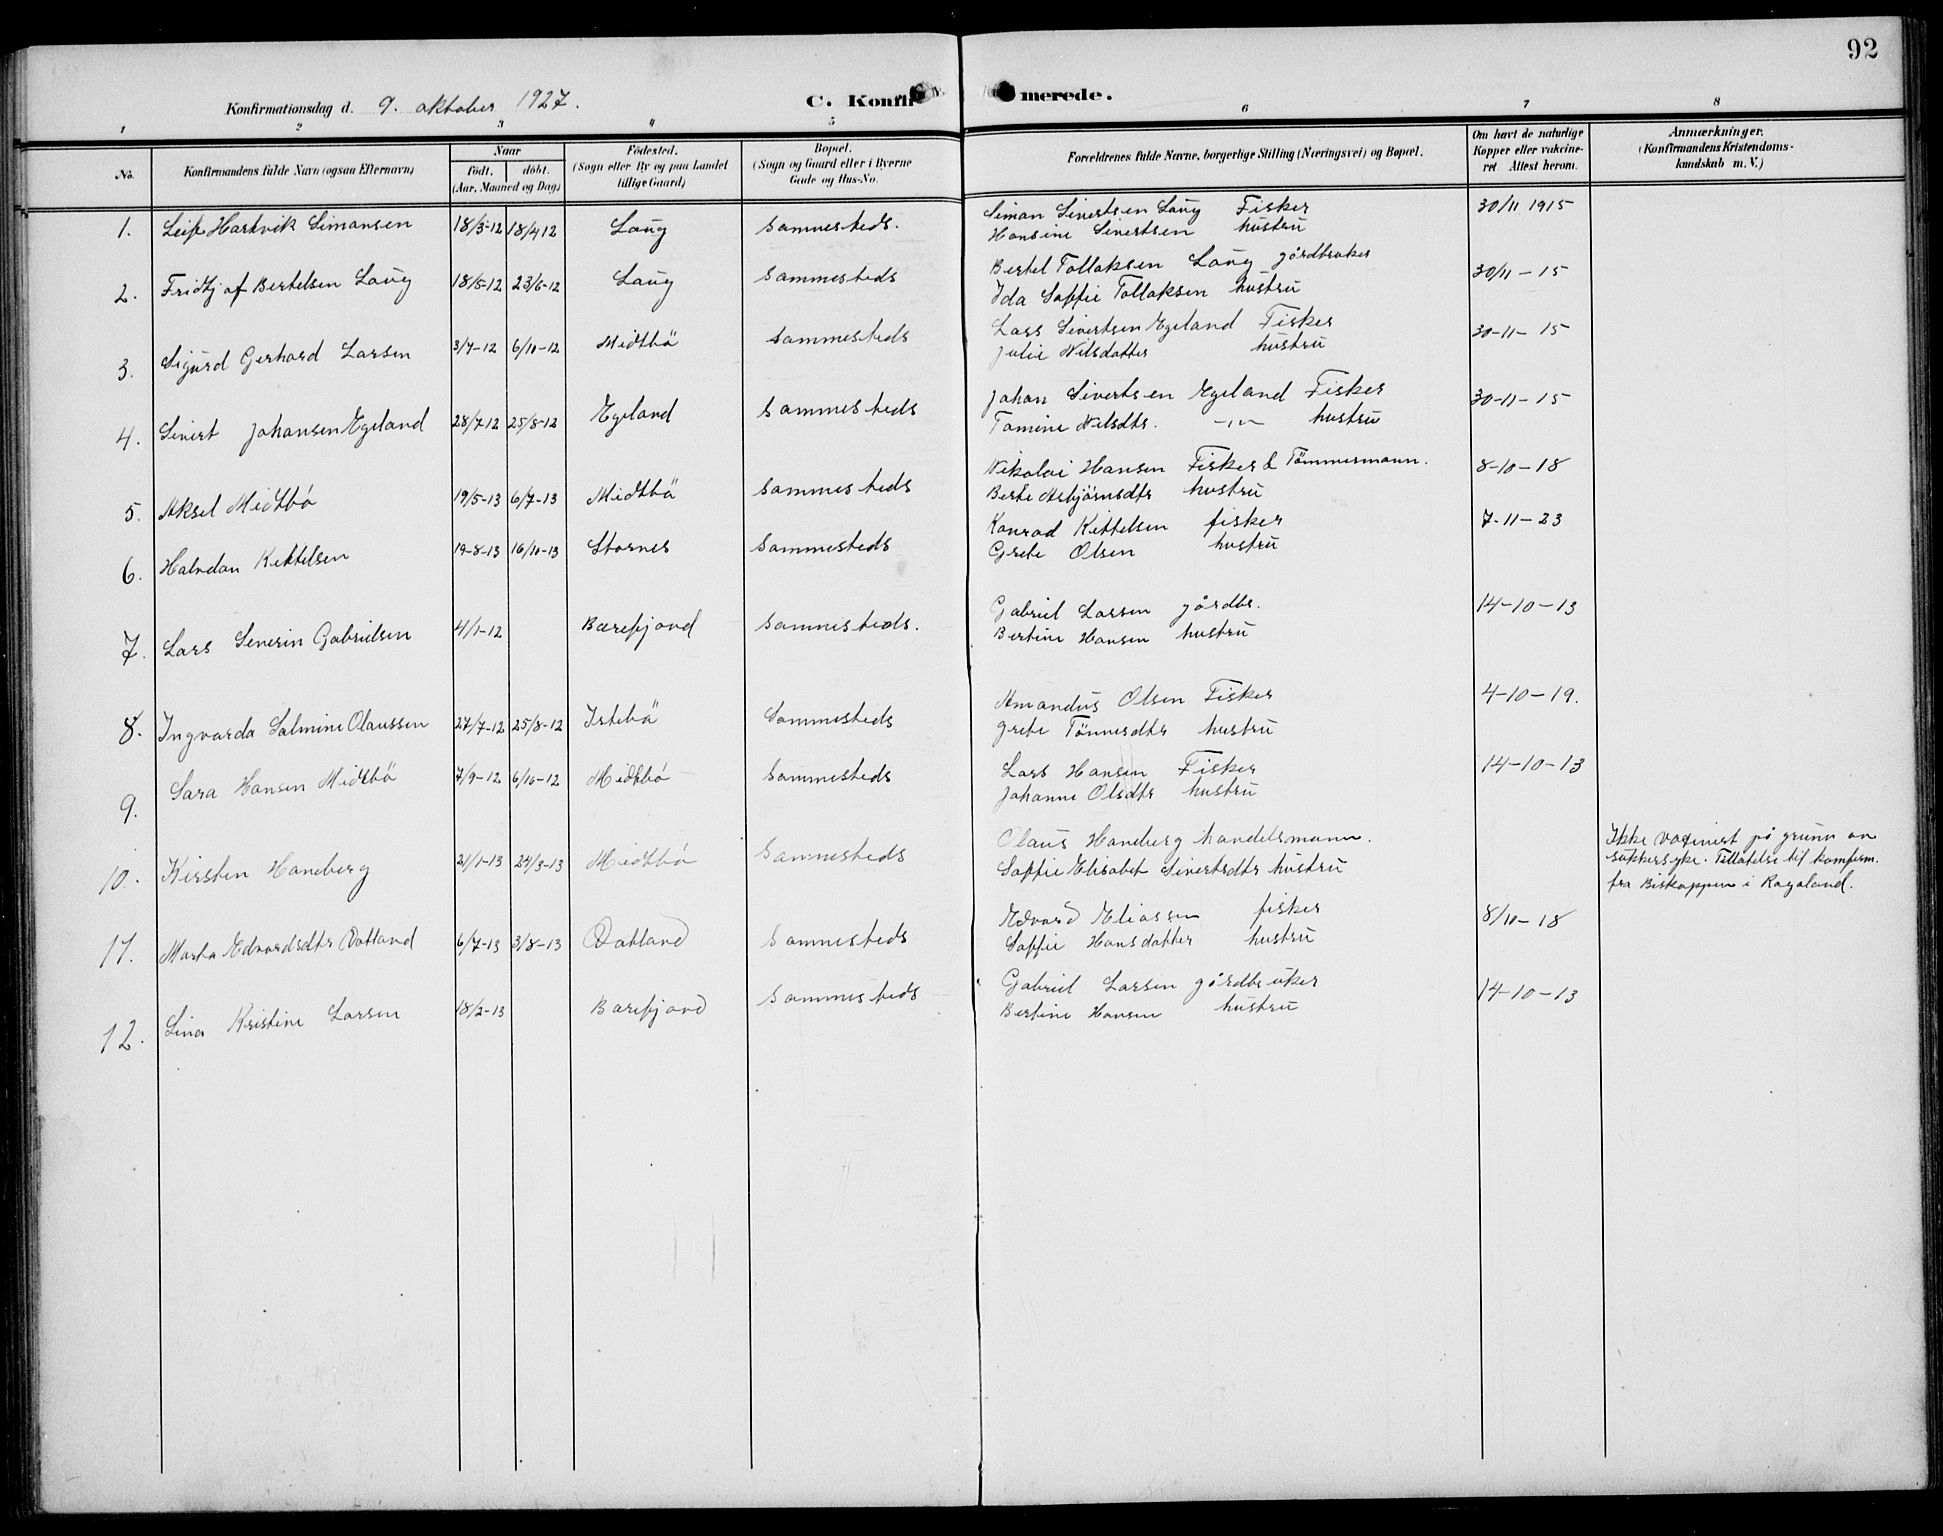 92
Konfirmationsdag d. 9. oktober 1927.
C. Konfirmerede.
1 2 3 4 5 6 7 8
No.
Konfirmandens fulde Navn (ogsaa Efternavn)
Naar
født. døbt.
(Aar, Maaned og Dag)
Fødested.
(Sogn eller By og paa Landet
tillige Gaard)
Bopæl.
(Sogn og Gaard eller i Byerne
Gade og Hus-No.
Forældrenes fulde Navne, borgerlige Stilling (Næringsvei) og Bopæl.
Om havt de naturlige
Kopper eller vakcine-
ret Attest herom.
Anmærkninger.
(Konfirmandens Kristendoms-
kundskab m. V.)
1. Leif Hartvik Simonsen 18/3-12 18/4 12 Laug Sammesteds. Simon Sivertsen Laug Fisker 30/11 1915
Hansine Sivertsen hustru
2. Fridtjof Bertelsen Laug 18/5-12 23/6-12 Laug Sammesteds Bertel Tollaksen Laug gårdbruker 30/11-15
Ida Soffie Tollaksen hustru
3. Sigurd Gerhard Larsen 3/7-12 6/10-12 Midtbö Sammesteds Lars Sivertsen Egeland Fisker 30-11-15
Julie Nilsdatter hustru
4. Sivert Johansen Egeland 28/7-12 25/8-12 Egeland Sammesteds Johan Sivertsen Egeland Fisker 30-11-15
Tomine Nilsdtr. -"- hustru
5. Aksel Midtbö 19/5-13 6/7-13 Midtbö Sammesteds Nikolai Hansen Fisker & Tömmermann. 8-10-18
Berte Asbjörnsdtr hustru
6. Halvdan Kettelsen 19-8-13 16/10-13 Stornes Sammesteds Konrad Kettelsen fisker 7-11-23
Grete Olsen hustru
7. Lars Severin Gabrielsen 4/1-12 Barefjord Sammesteds. Gabriel Larsen gårdbr. 14-10-13
Bertine Hansen hustru
8. Ingvarda Salmine Olaussen 27/7-12 25/8-12 Istebö Sammesteds Amandus Olsen Fisker 4-10-19.
Grete Tönnesdtr hustru
9. Sara Hansen Midtbö 7/9-12 6/10-12 Midtbö Sammesteds Lars Hansen Fisker 14-10-13
Johanne Olsdtr hustru
10. Kirsten Haneberg 21/1-13 24/3-13 Midtbö Sammesteds Olaus Haneberg handelsmann. Ikke vaxinert på grunn av
Soffie Elisabet Sivertsdtr hustru sukkersyke. Tillatelse til konfirm.
fra Biskoppen i Rogaland.
11. Marta Edvardsdtr Vatland 6/7-13 3/8-13 Vatland Sammesteds Edvard Eliassen fisker 8/10-18
Soffie Hansdatter hustru
12. Lina Kristine Larsen 18/2-13 Barefjord Sammesteds Gabriel Larsen gårdbruker 14-10-13
Bertine Hansen hustru